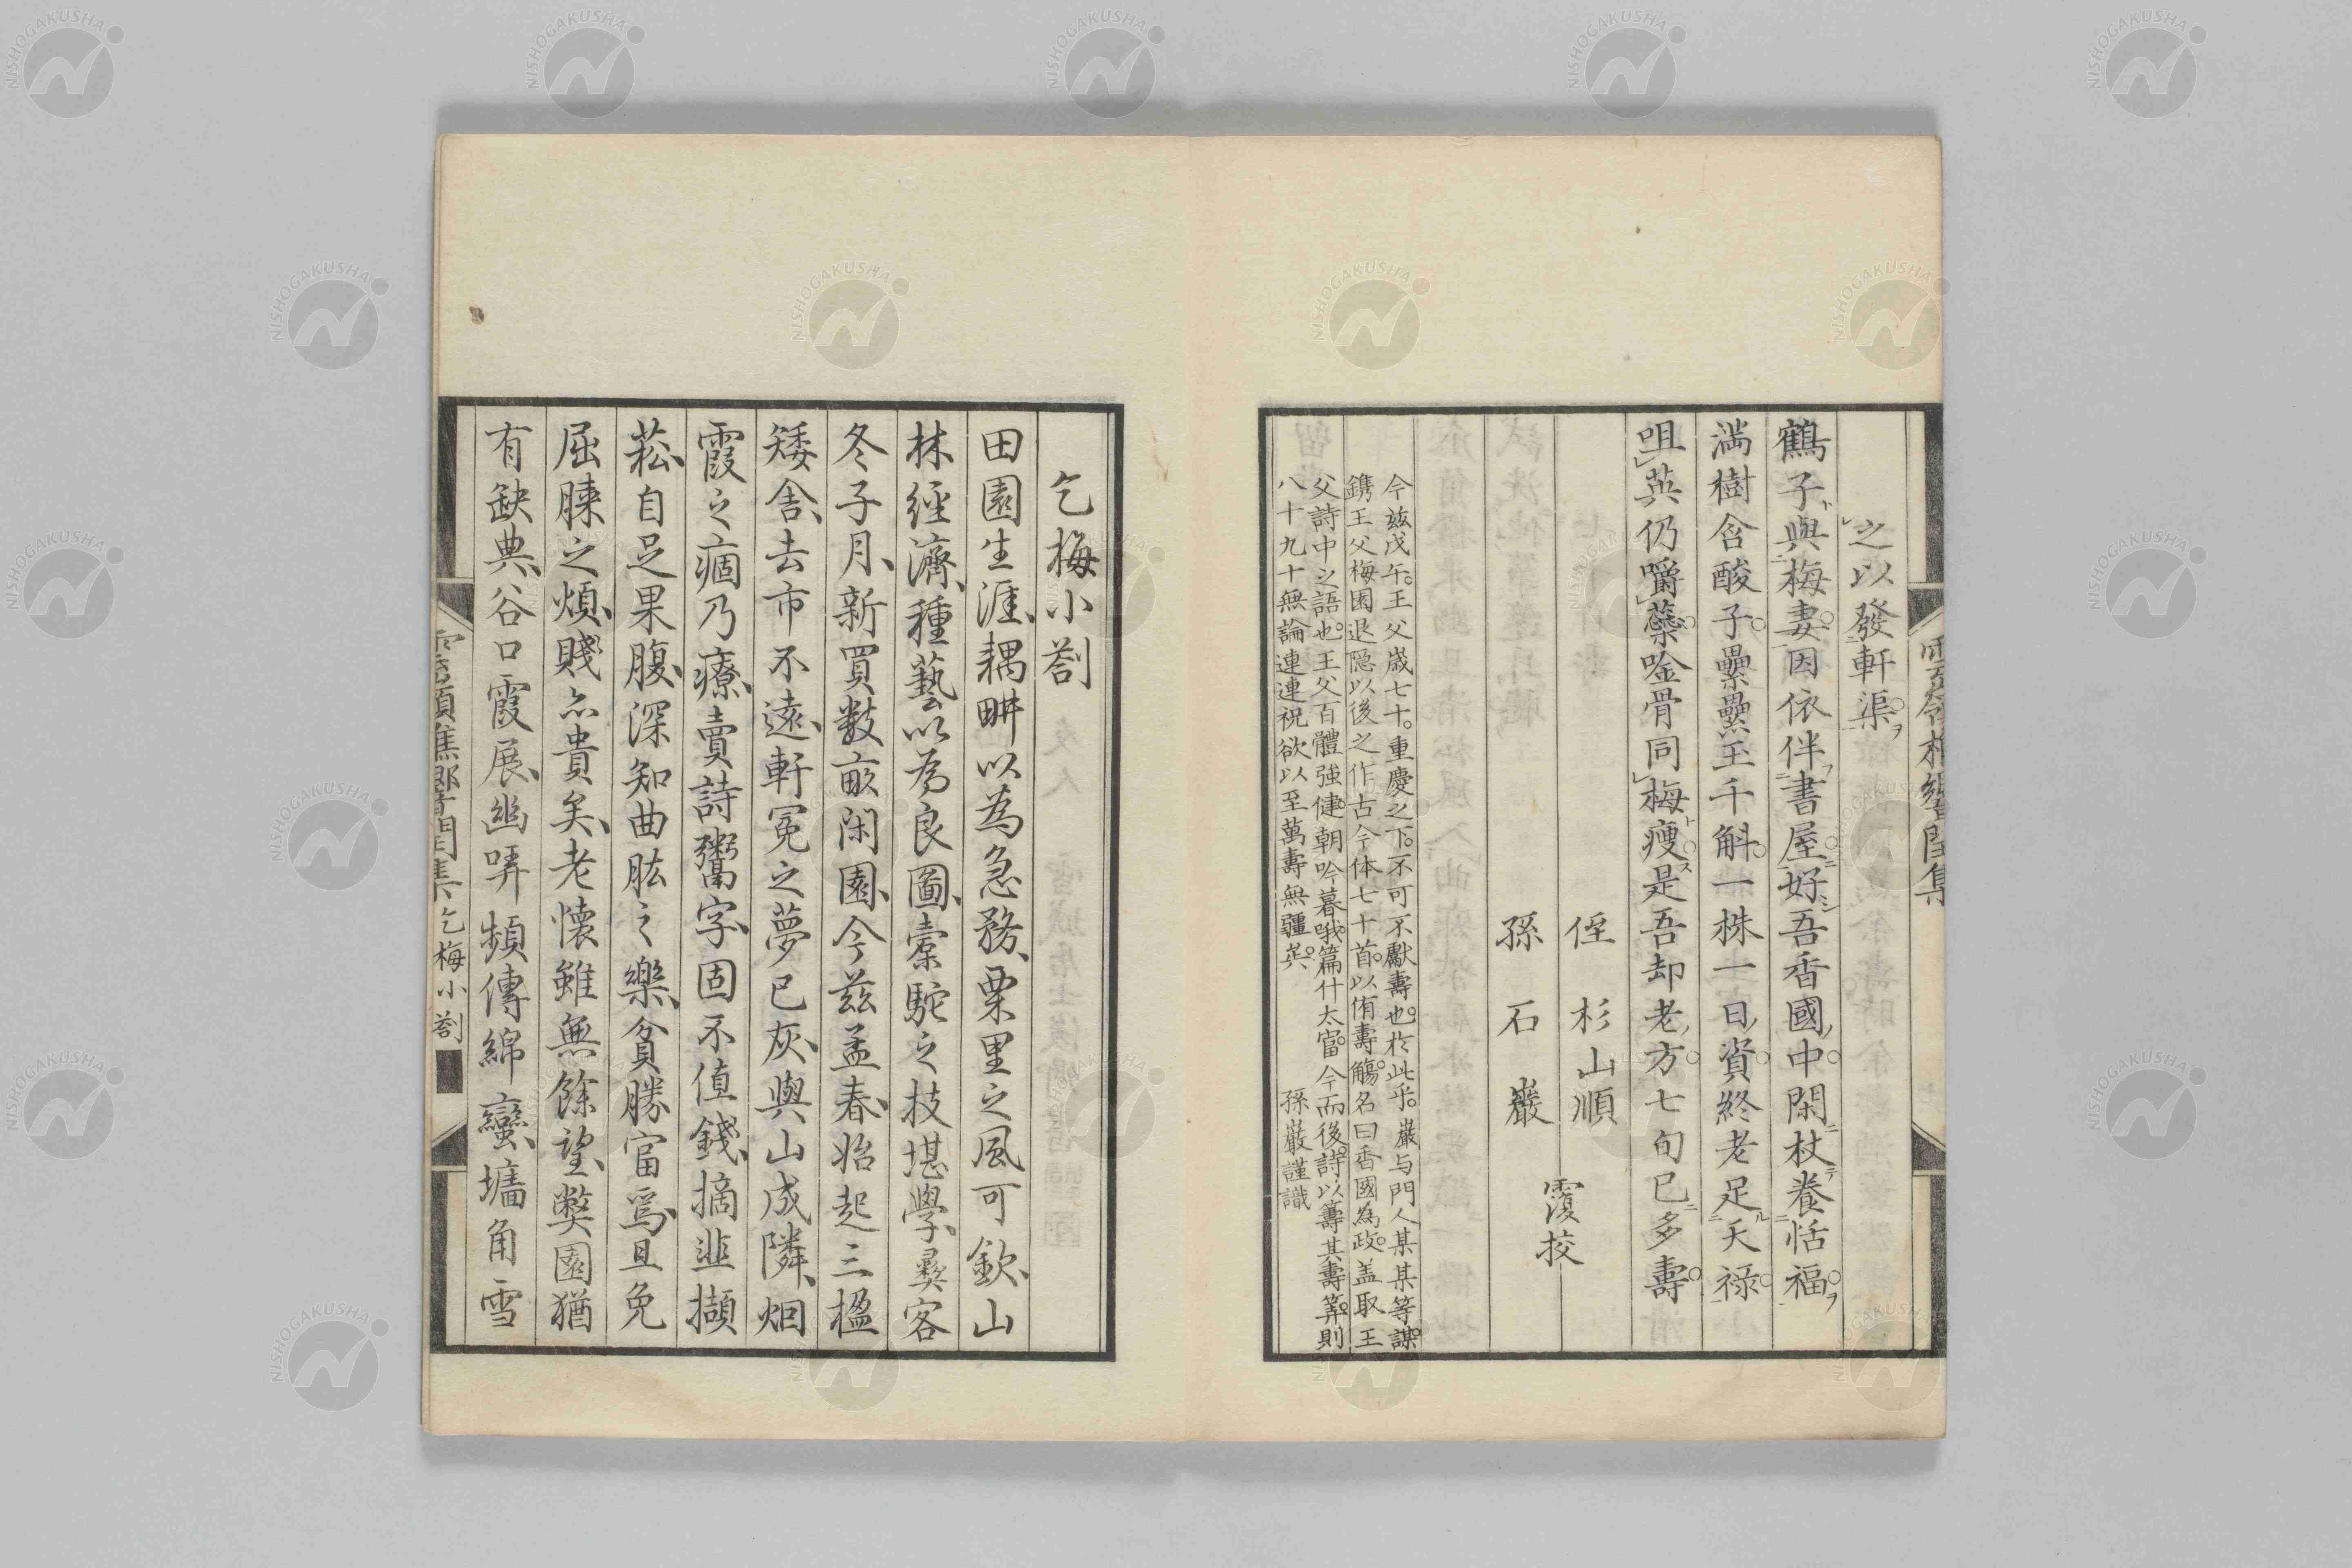 之以發軒渠
鶴子與梅妻因依伴書屋好吾香國中閑杖養恬福
滿樹含酸子纍纍玉千斛一株一日資終老足天祿
咀英仍嚼蘂唫骨同梅瘦是吾却老方七旬已多壽
侄 杉山順
孫 石 巖
覆挍
今玆戊午王父歲七十重慶之下不可不獻壽也於此乎巖与門人某某等謀
鐫王父梅園退隱以後之作古今体七十首以侑壽觴名曰香國為政盖取王
父詩中之語也王父百體強健朝吟暮哦篇什太富今而後詩以籌其壽筭則
八十九十無論連連祝欲以至萬壽無疆矣 孫巖謹識
乞梅小劄
田園生涯耦畊以為急務栗里之風可欽山
林經濟種藝以為良圖橐駝之技堪學㬰客
冬子月新買数畝閑園今茲孟春始起三楹
矮舍去市不遠軒冕之夢已灰與山成隣烟
霞之痼乃療賣詩鬻字固不值錢摘韭擷
菘自足果腹深知曲肱之樂貧勝富焉且免
屈膝之煩賤亦貴矣老懷雖無餘望獘園猶
有缺典谷口霞展幽哢頻傳綿蠻墻角雪
乞梅小劄